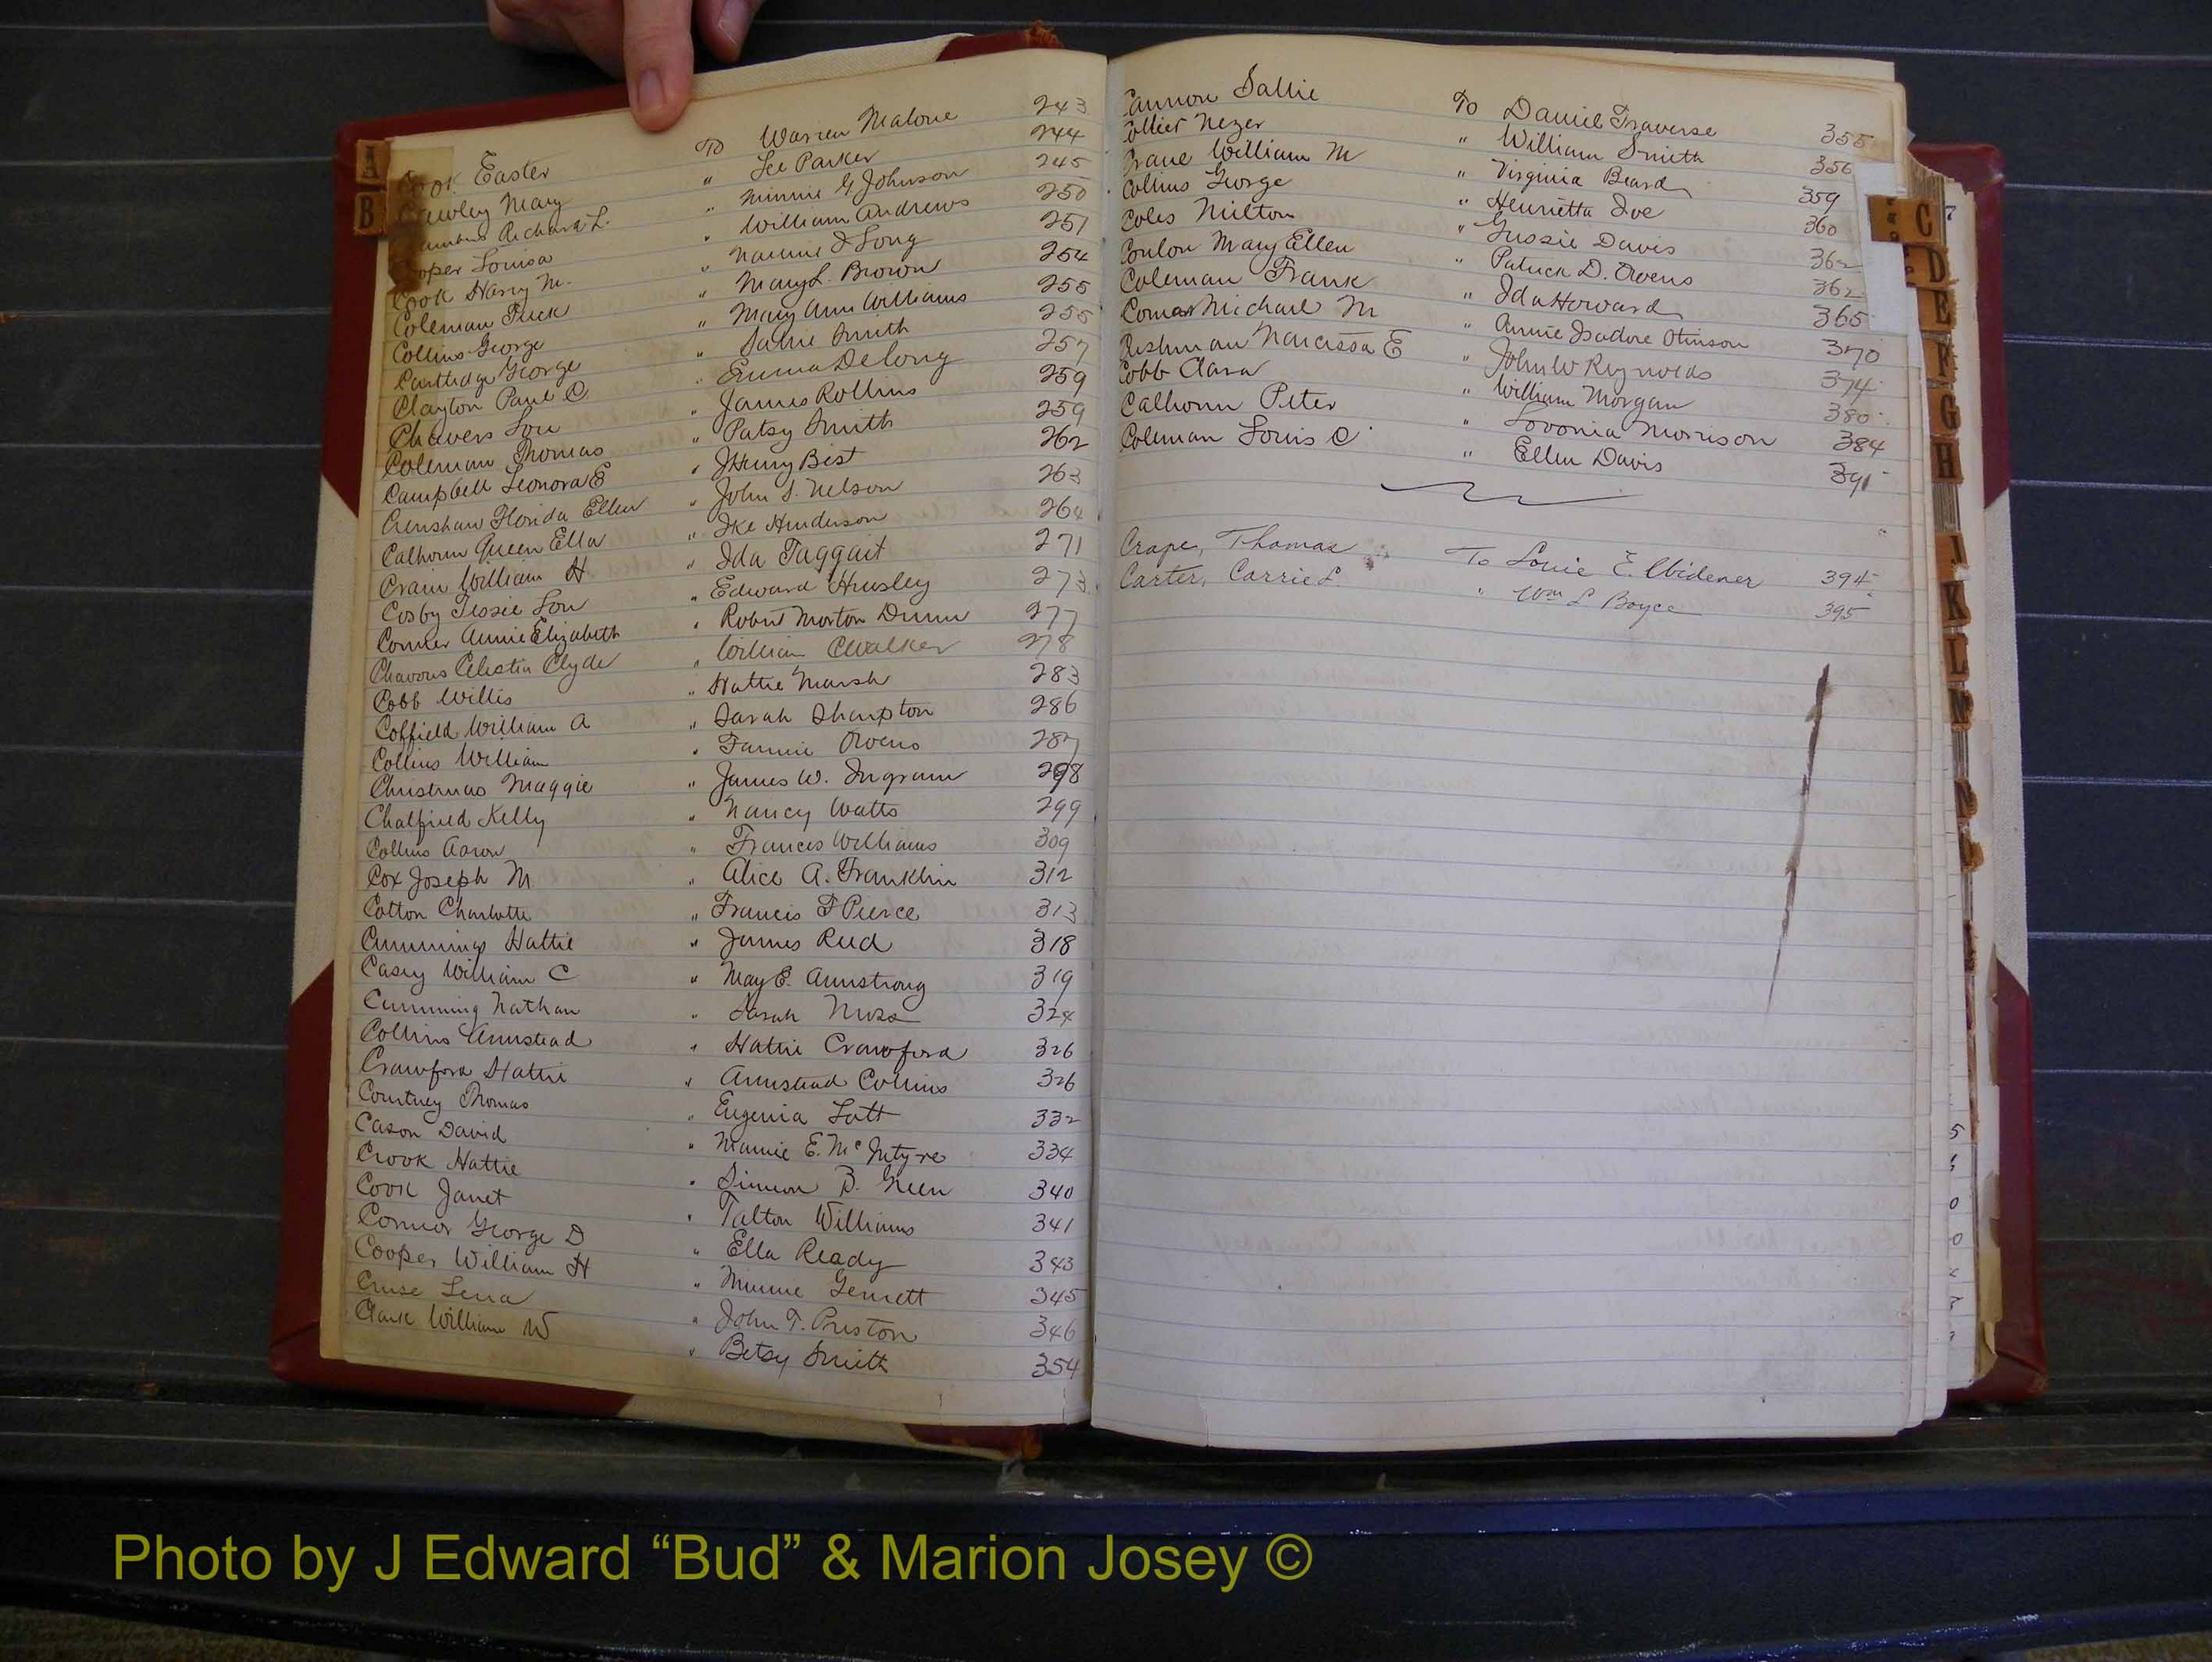 A
B
Cook Easter To Warren Malone 243
Cawley Mary " Lee Parker 244
Richard L. " Minnie G Johnson 245
Cooper Louisa " William Andrews 250
Cook Harry M. " Nannie J Long 251
Coleman Tuck " Mary L. Brown 254
Collins George " Mary Ann Williams 255
Cartledge George " Sallie Smith 255
Clayton Paul C " Emma Delong 257
Chavers Lou " James Rollins 259
Coleman Thomas " Patsy Smith 259
Campbell Leonora E " J Henry Best 262
Crenshaw Florida Ellen " John S. Nelson 263
Calhoun Queen Ella " Ike Henderson 264
Cram William H " Ida Taggart 271
Cosby Jessie Lou " Edward Hensley 273
Comer Annie Elizabeth " Robert Morton Dunn 277
Chavous Celestia Clyde " William C Walker 278
Cobb Willis " Hattie Marsh 283
Coffield William A " Sarah Sharpton 286
Collins William " Fannie Owens 287
Christmas Maggie " James W. Ingram 298
Chalfired Kelly " Nancy Watts 299
Collins Aaron " Frances Williams 309
Cox Joseph M " Alice A. Franklin 312
Cotton Charlotte " Francis F Pierce 313
Cummings Hattie " James Reed 318
Casey William C " May E. Armstrong 319
Cumming Nathan " Sarah Nuss 324
Collins Armstead " Hattie Crawford 326
Crawford Hattie " Armstead Collins 326
Courtney Thomas " Eugenia Lott 332
Cason David " Mamie E. McIntyre 334
Crook Hattie " Simeon B. Green 340
Cook Janet " Talton Williams 341
Connor George D " Ella Ready 343
Cooper William H " Minnie Gennett 345
Cruse Lena " John T. Preston 346
Clark William W " Betsy Smith 354
Cannon Sallie To Daniel Traverse 355
Collier Nezer " William Smith 356
Crane William M " Virginia Beard 359
Collins George " Henrietta Ive 360
Coles Milton " Gussie Davis 362
Conlon Mary Ellen " Patrick D. Owens 362
Coleman Frank " Ida Howard 365
Comar Michael M " Annie Isadore Stinson 370
Cushman Narcissa E " John W Reynolds 374
Cobb Clara " William Morgan 380
Calhoun Peter " Lovonia Morrison 384
Coleman Louis C " Ellen Davis 391
Crape, Thomas To Louie E. Widener 394
Carter, Carrie L. " Wm L Boyce 395
C
D
E
F
G
H
J
K
L
M
N
Photo by J Edward “Bud” & Marion Josey ©